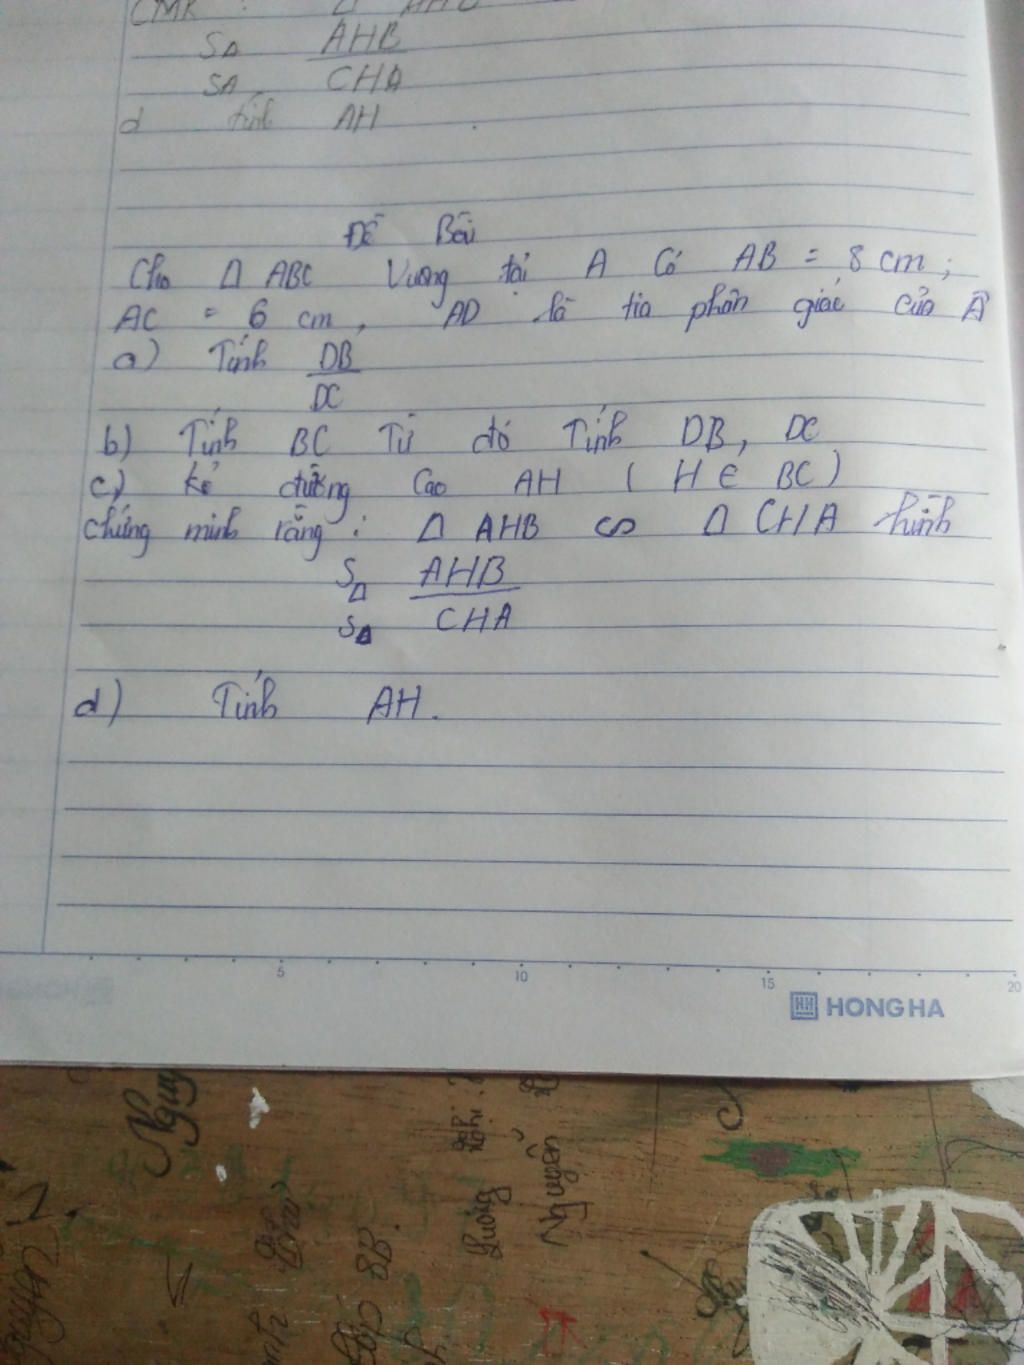 CMR : Δ AHB
SΔ AHB
SΔ CHA
d tính AH
Đề Bài
Cho Δ ABC Vuông tại A Có AB = 8 cm ;
AC = 6 cm , AD là tia phân giác của Â
a) Tính DB
DC
b) Tính BC Từ đó Tính DB, DC
c) kẻ đường cao AH ( H ∈ BC )
chứng minh rằng : Δ AHB ∽ Δ CHA tính
SΔ AHB
SΔ CHA
d) Tính AH.
5 10 15 20
HH HONG HA
Nguy
Lương
Nguyễn
lớp 8B.